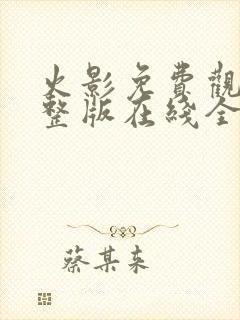 火影免費觀
整版在綫全
蔡某來